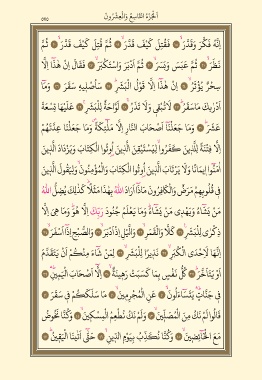 الجزء التاسع والعشرون
٥٧٥
إِنَّهُ فَكَّرَ وَقَدَّرَ ۞ فَقُتِلَ كَيْفَ قَدَّرَ ۞ ثُمَّ قُتِلَ كَيْفَ قَدَّرَ ۞ ثُمَّ
نَظَرَ ۞ ثُمَّ عَبَسَ وَبَسَرَ ۞ ثُمَّ أَدْبَرَ وَاسْتَكْبَرَ ۞ فَقَالَ إِنْ هٰذَا إِلَّا
سِحْرٌ يُؤْثَرُ ۞ إِنْ هٰذَا إِلَّا قَوْلُ الْبَشَرِ ۞ سَأُصْلِيهِ سَقَرَ ۞ وَمَا
أَدْرٰيكَ مَا سَقَرُ ۞ لَا تُبْقِي وَلَا تَذَرُ ۞ لَوَّاحَةٌ لِلْبَشَرِ ۞ عَلَيْهَا تِسْعَةَ
عَشَرَ ۞ وَمَا جَعَلْنَا أَصْحَابَ النَّارِ إِلَّا مَلٰئِكَةً وَمَا جَعَلْنَا عِدَّتَهُمْ
إِلَّا فِتْنَةً لِلَّذِينَ كَفَرُوا لِيَسْتَيْقِنَ الَّذِينَ أُوتُوا الْكِتَابَ وَيَزْدَادَ الَّذِينَ
آمَنُوا إِيمَانًا وَلَا يَرْتَابَ الَّذِينَ أُوتُوا الْكِتَابَ وَالْمُؤْمِنُونَ وَلِيَقُولَ الَّذِينَ
فِي قُلُوبِهِمْ مَرَضٌ وَالْكَافِرُونَ مَاذَا أَرَادَ اللهُ بِهٰذَا مَثَلًا كَذٰلِكَ يُضِلُّ اللهُ
مَنْ يَشَاءُ وَيَهْدِي مَنْ يَشَاءُ وَمَا يَعْلَمُ جُنُودَ رَبِّكَ إِلَّا هُوَ وَمَا هِيَ إِلَّا
ذِكْرٰى لِلْبَشَرِ ۞ كَلَّا وَالْقَمَرِ ۞ وَالَّيْلِ إِذْ أَدْبَرَ ۞ وَالصُّبْحِ إِذَا أَسْفَرَ ۞
إِنَّهَا لَإِحْدَى الْكُبَرِ ۞ نَذِيرًا لِلْبَشَرِ ۞ لِمَنْ شَاءَ مِنْكُمْ أَنْ يَتَقَدَّمَ
أَوْ يَتَأَخَّرَ ۞ كُلُّ نَفْسٍ بِمَا كَسَبَتْ رَهِينَةٌ ۞ إِلَّا أَصْحَابَ الْيَمِينِ ۞
فِي جَنَّاتٍ يَتَسَاءَلُونَ ۞ عَنِ الْمُجْرِمِينَ ۞ مَا سَلَكَكُمْ فِي سَقَرَ ۞
قَالُوا لَمْ نَكُ مِنَ الْمُصَلِّينَ ۞ وَلَمْ نَكُ نُطْعِمُ الْمِسْكِينَ ۞ وَكُنَّا نَخُوضُ
مَعَ الْخَائِضِينَ ۞ وَكُنَّا نُكَذِّبُ بِيَوْمِ الدِّينِ ۞ حَتّٰى أَتٰينَا الْيَقِينُ ۞